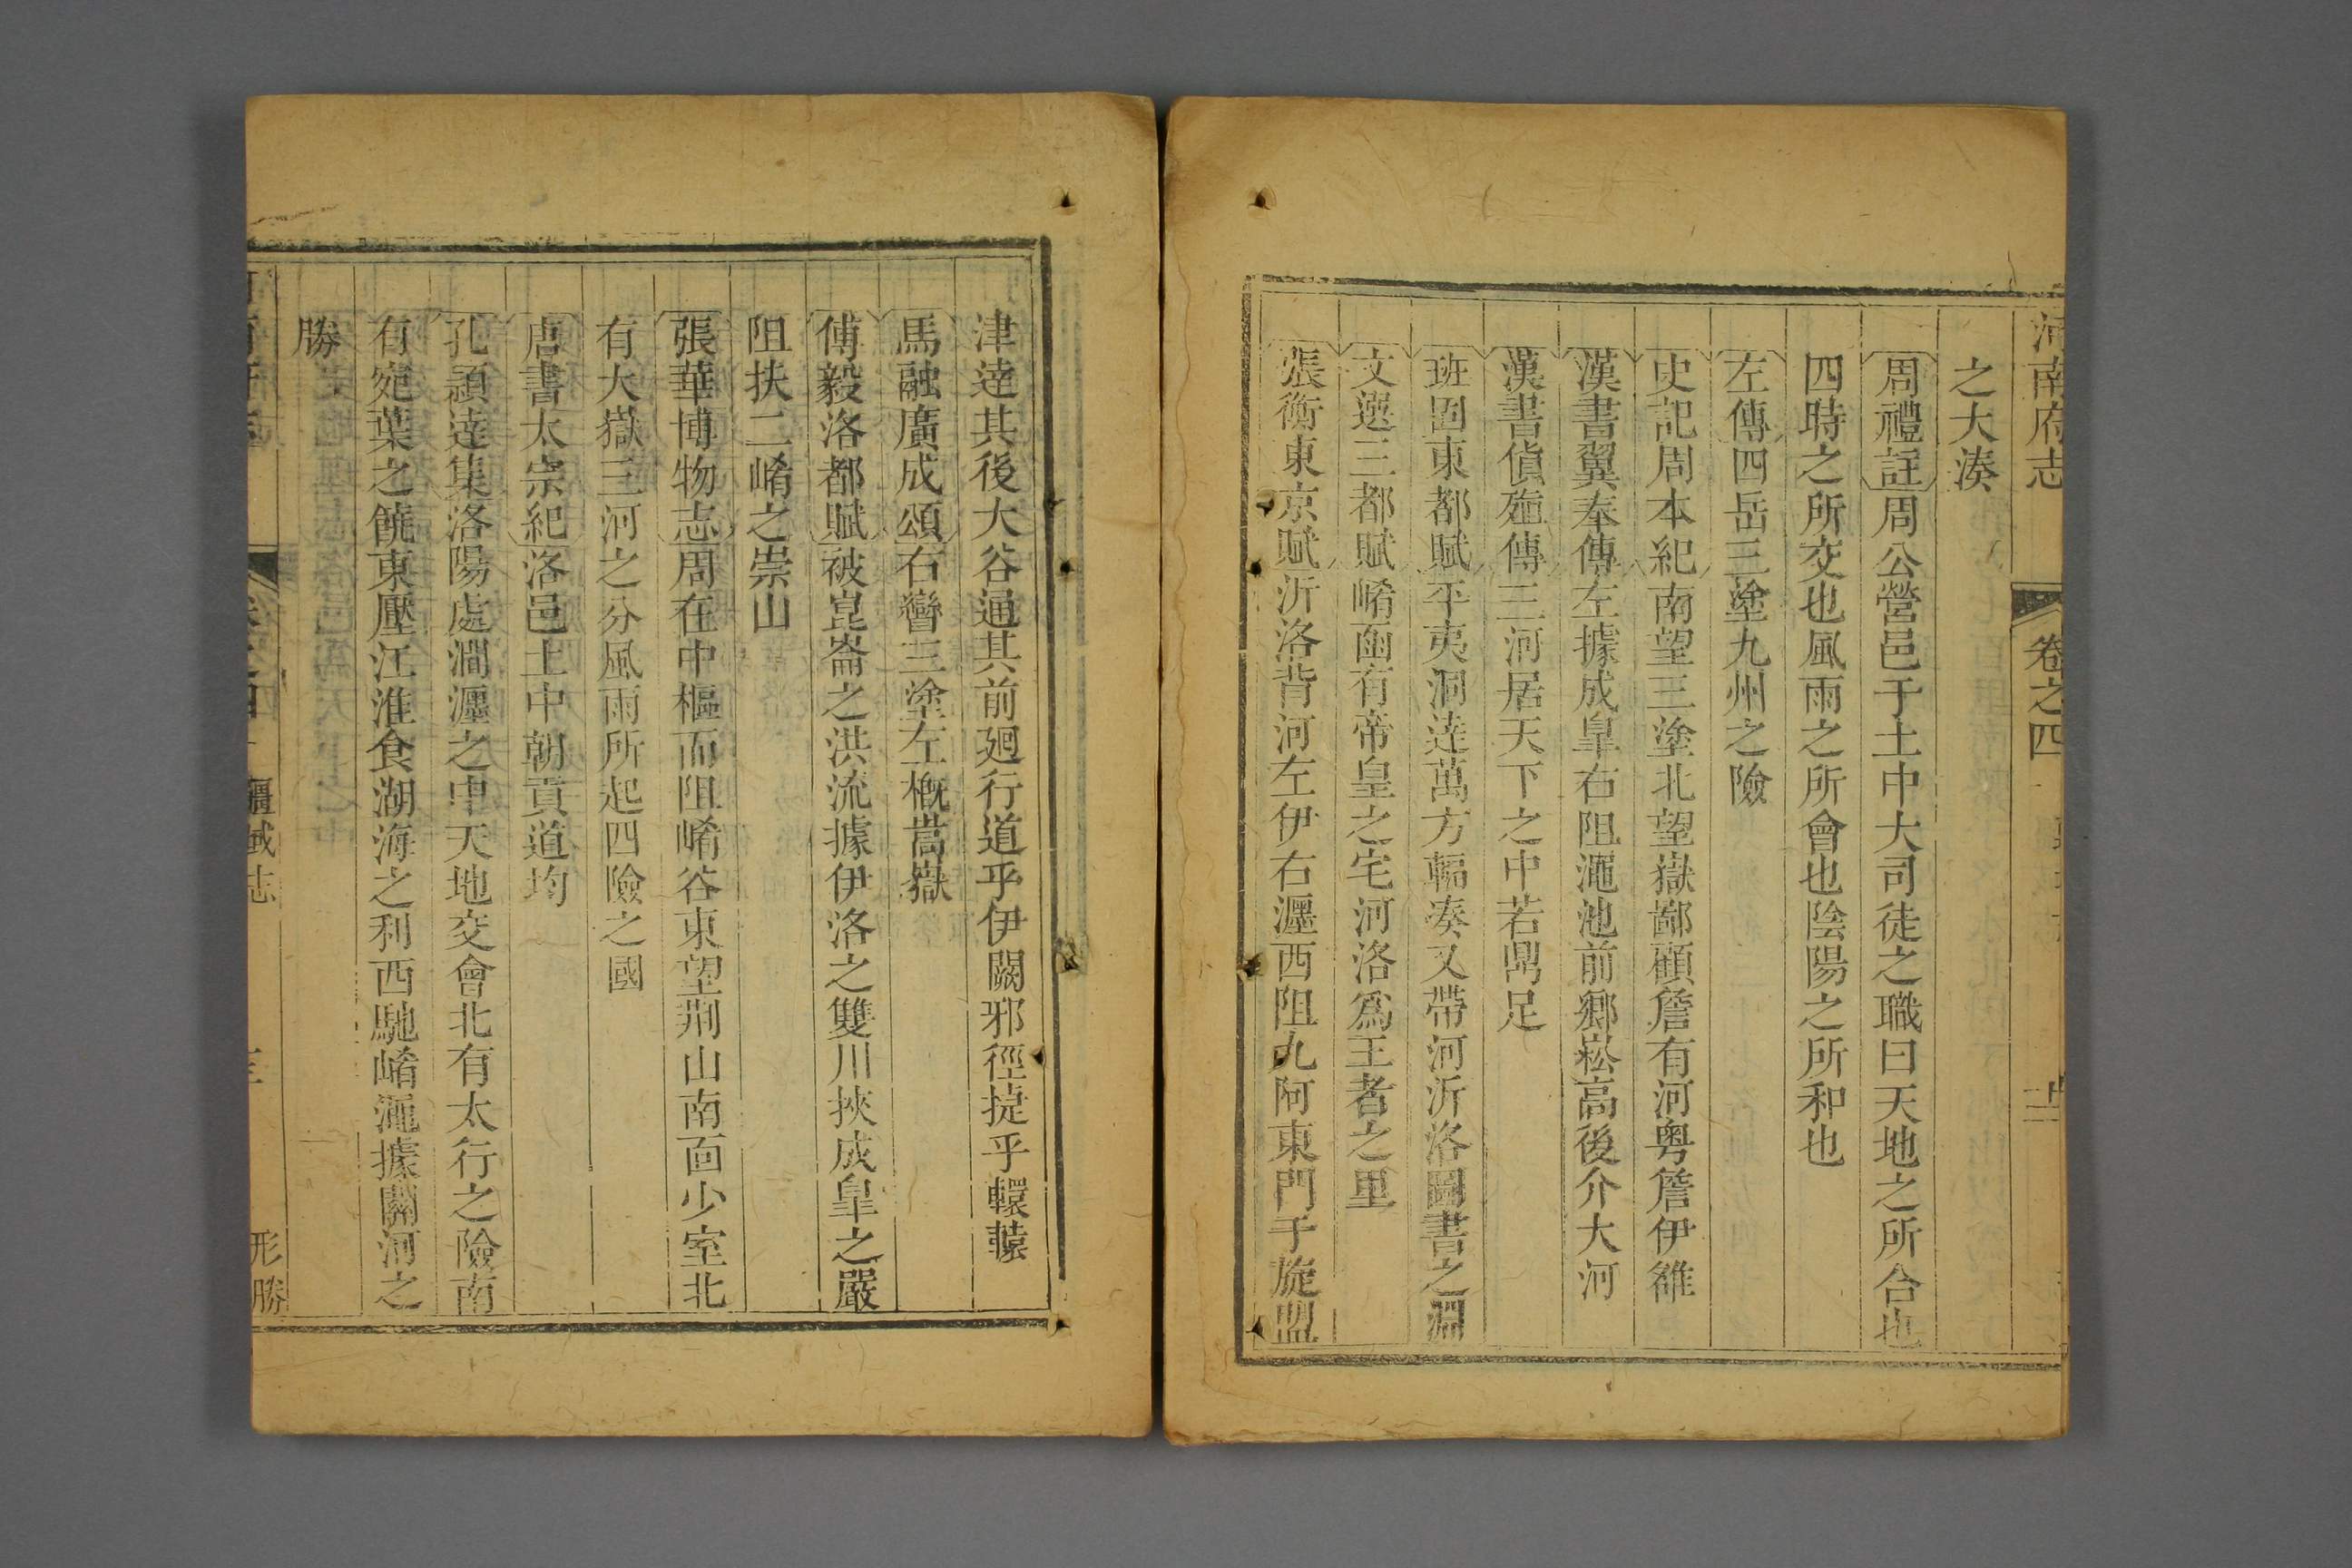 河南府志 卷之四
之大湊
周禮註周公營邑于土中大司徒之職曰天地之所合也
四時之所交也風雨之所會也陰陽之所和也
左傳四岳三塗九州之險
史記周本紀南望三塗北望嶽鄙顧詹有河粤詹伊雒
漢書翼奉傳左據成皐右阻澠池前鄉崧高後介大河
漢書貨殖傳三河居天下之中若鼎足
班固東都賦平夷洞達萬方輻湊又帶河沂洛圖書之淵
文選三都賦崤函有帝皇之宅河洛爲王者之里
張衡東京賦沂洛背河左伊右瀍西阻九阿東門于旋盟
津達其後大谷通其前廻行道乎伊闕邪徑捷乎轘轅
馬融廣成頌右矕三塗左概嵩嶽
傅毅洛都賦被崑崙之洪流據伊洛之雙川挾成皐之嚴
阻扶二崤之崇山
張華博物志周在中樞而阻崤谷東望荆山南面少室北
有大嶽三河之分風雨所起四險之國
唐書太宗紀洛邑土中朝貢道均
孔穎達集洛陽處澗瀍之中天地交會北有太行之險南
有宛葉之饒東壓江淮食湖海之利西馳崤澠據關河之
勝
疆域志 形勝